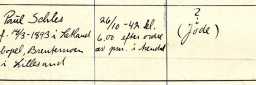 Paul Schles
f. 14/3-1893 i Letland
bopel, Brentemoen
i Lillesand
26/10-42 kl.
6.00 efter ordre
av pm. i Arendal
?
(Jøde)